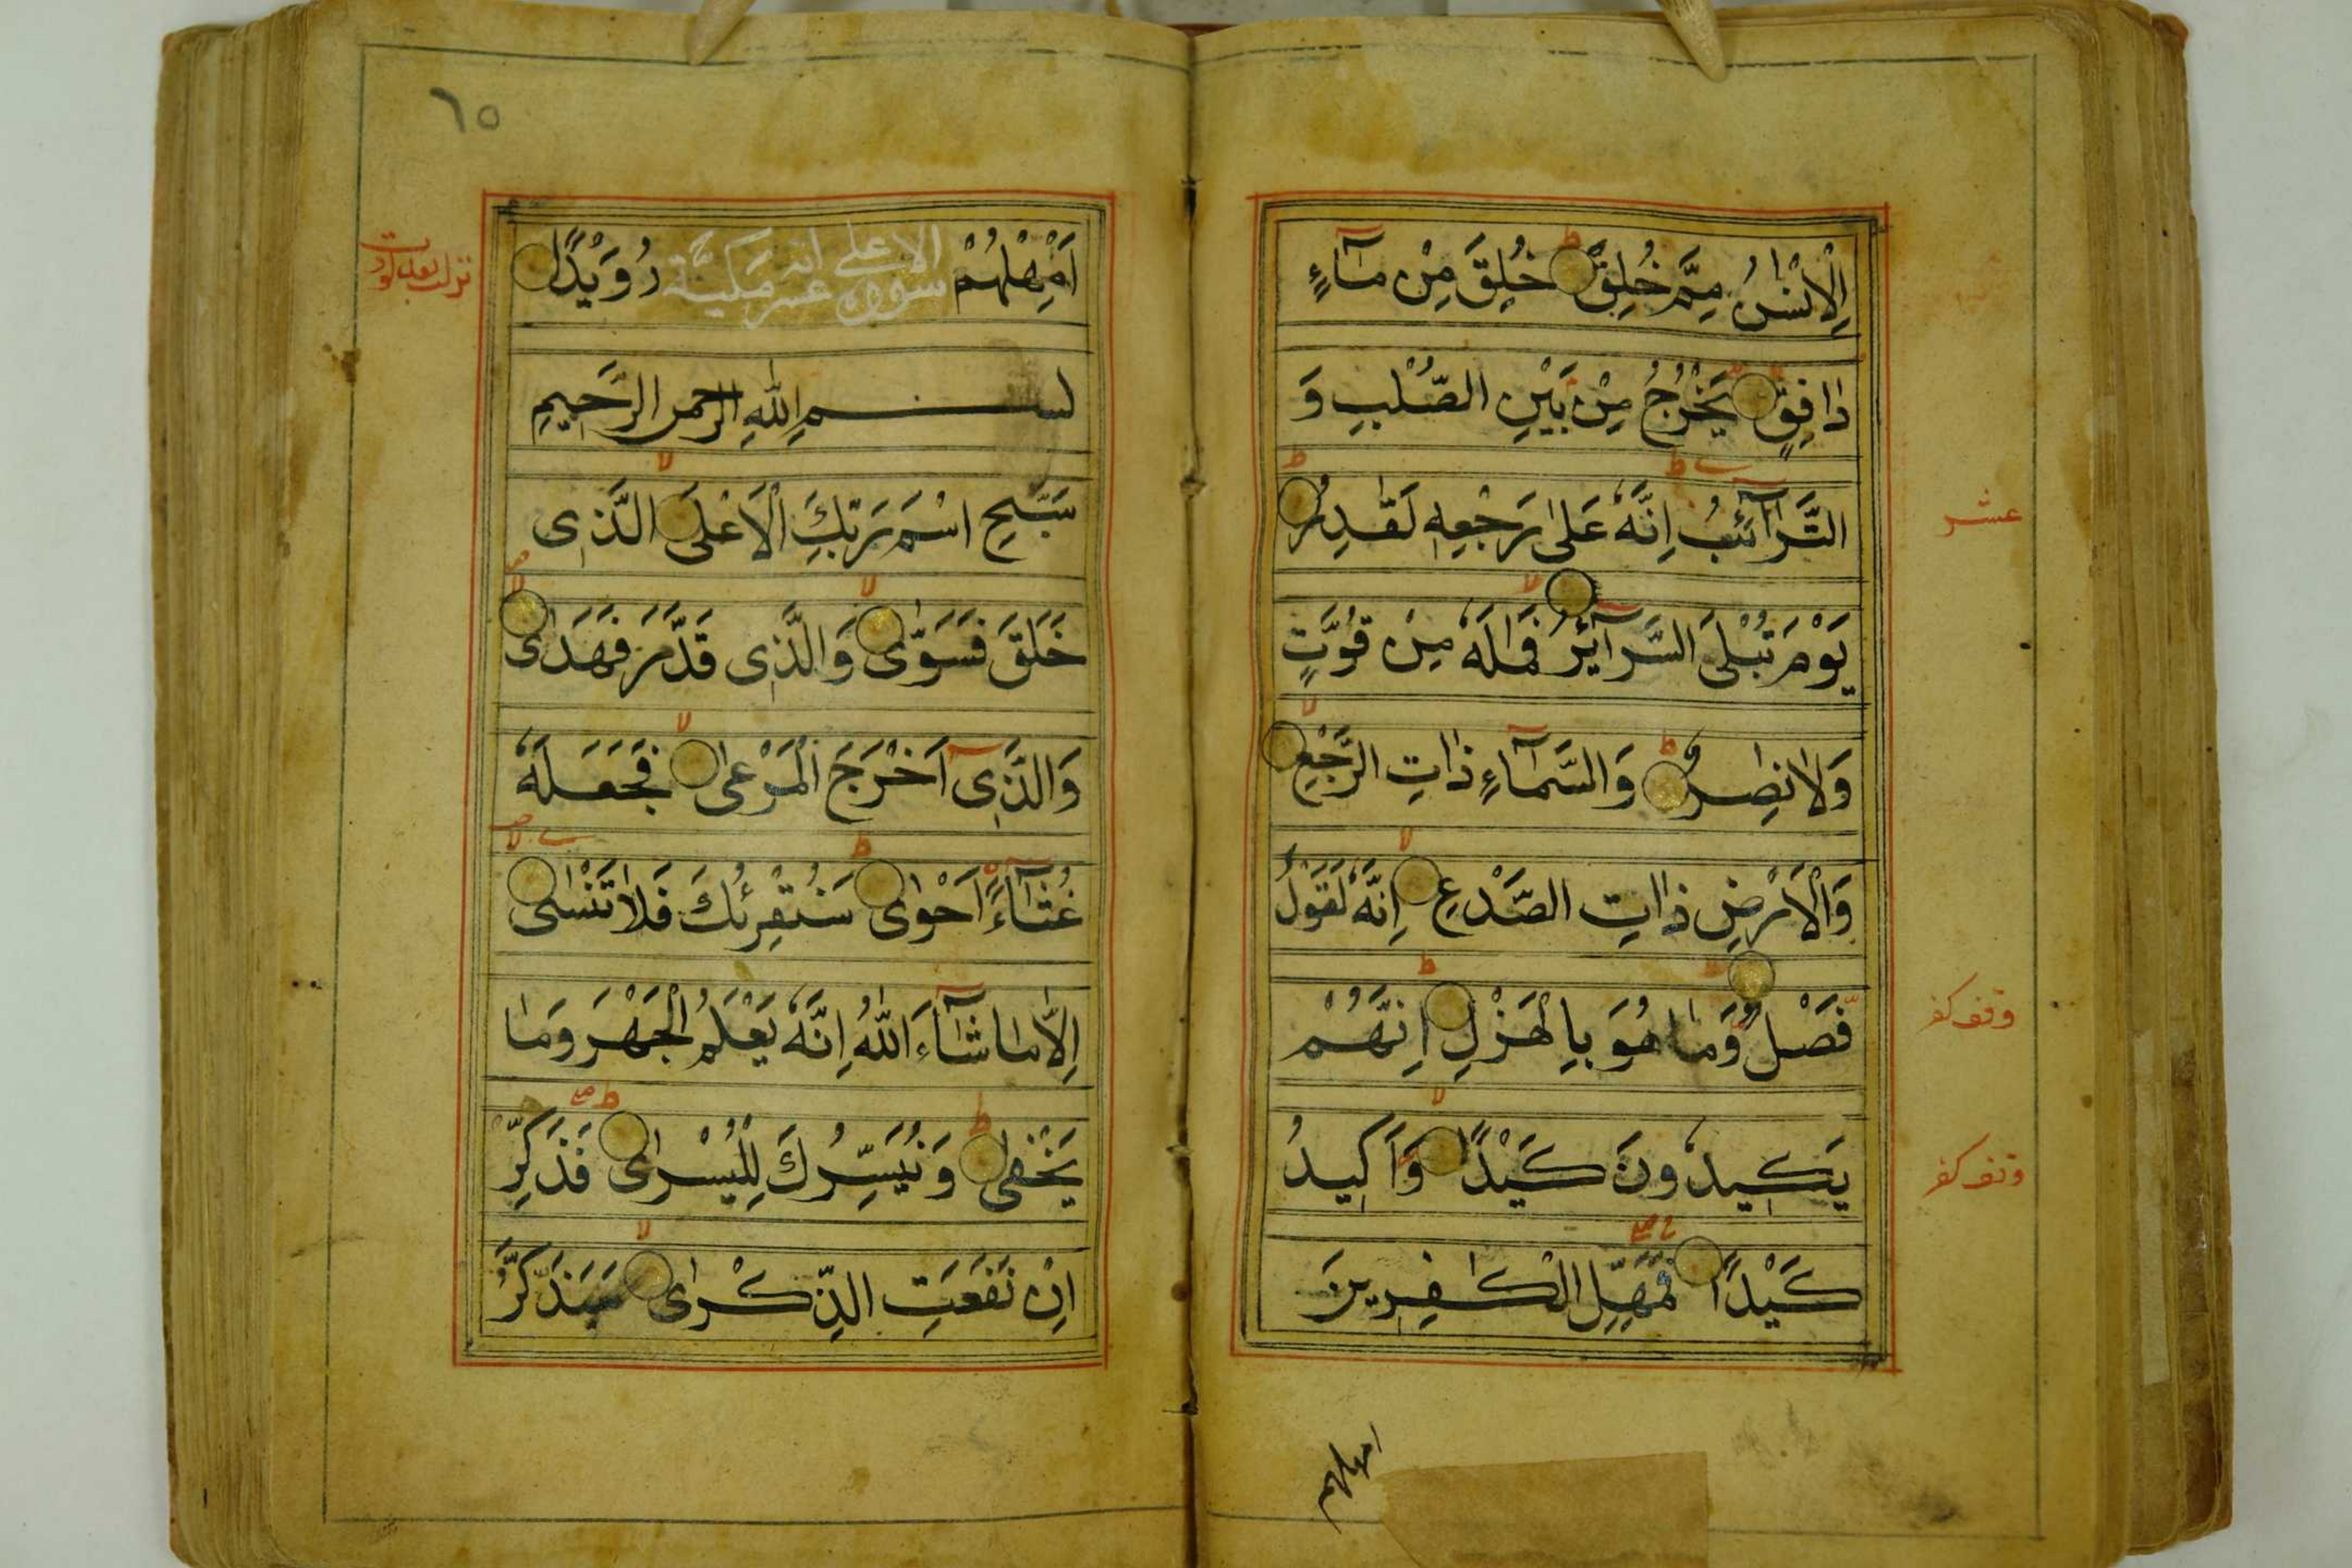 اِلْاِنْسٰنُ مِمَّ خُلِقَ خُلِقَ مِنْ مَآءٍ
دٰافِقٍ يَخْرُجُ مِنْ بَيْنِ الصُّلْبِ وَ
التَّرَآئِبُ اِنَّهُ عَلٰى رَجْعِهٖ لَقٰدِرٌ
عشر
يَوْمَ تُبْلَى السَّرَآئِرُ فَمٰالَهُ مِنْ قُوَّتٍ
وَلٰا نٰاصِرٍ وَالسَّمَآءٍ ذٰاتِ الرَّجْعِ
وَالْاَرْضِ ذٰاتِ الصَّدْعِ اِنَّهُ لَقَوْلٌ
فَصْلٌ وَمٰا هُوَ بِالْهَزْلِ اِنَّهُمْ
وقف كفر
يَكِيدُونَ كَيْدًا وَاَكِيدُ
وقف كفر
كَيْدًا فَمَهِّلِ الْكٰفِرِينَ
امهلهم
٦٥
اَمْهِلْهُمْ رُوَيْدًا
سورة الاعلى مكيّة
بسم اللّٰهِ الرحمن الرَّحِيمِ
سَبِّحِ اسْمَ رَبِّكَ الْاَعْلَى الَّذِى
خَلَقَ فَسَوّٰى وَالَّذِى قَدَّرَ فَهَدٰى
وَالَّذِىٓ اَخْرَجَ الْمَرْعٰى فَجَعَلَهُ
غُثَآءً اَحْوٰى سَنُقْرِئُكَ فَلٰا تَنْسٰى
اِلّٰا مٰا شَآءَ اللّٰهُ اِنَّهُ يَعْلَمُ الْجَهْرَ وَمٰا
يَخْفٰى وَنُيَسِّرُكَ لِلْيُسْرٰى فَذَكِّرْ
اِنْ نَفَعَتِ الذِّكْرٰى سَيَذَّكَّرُ